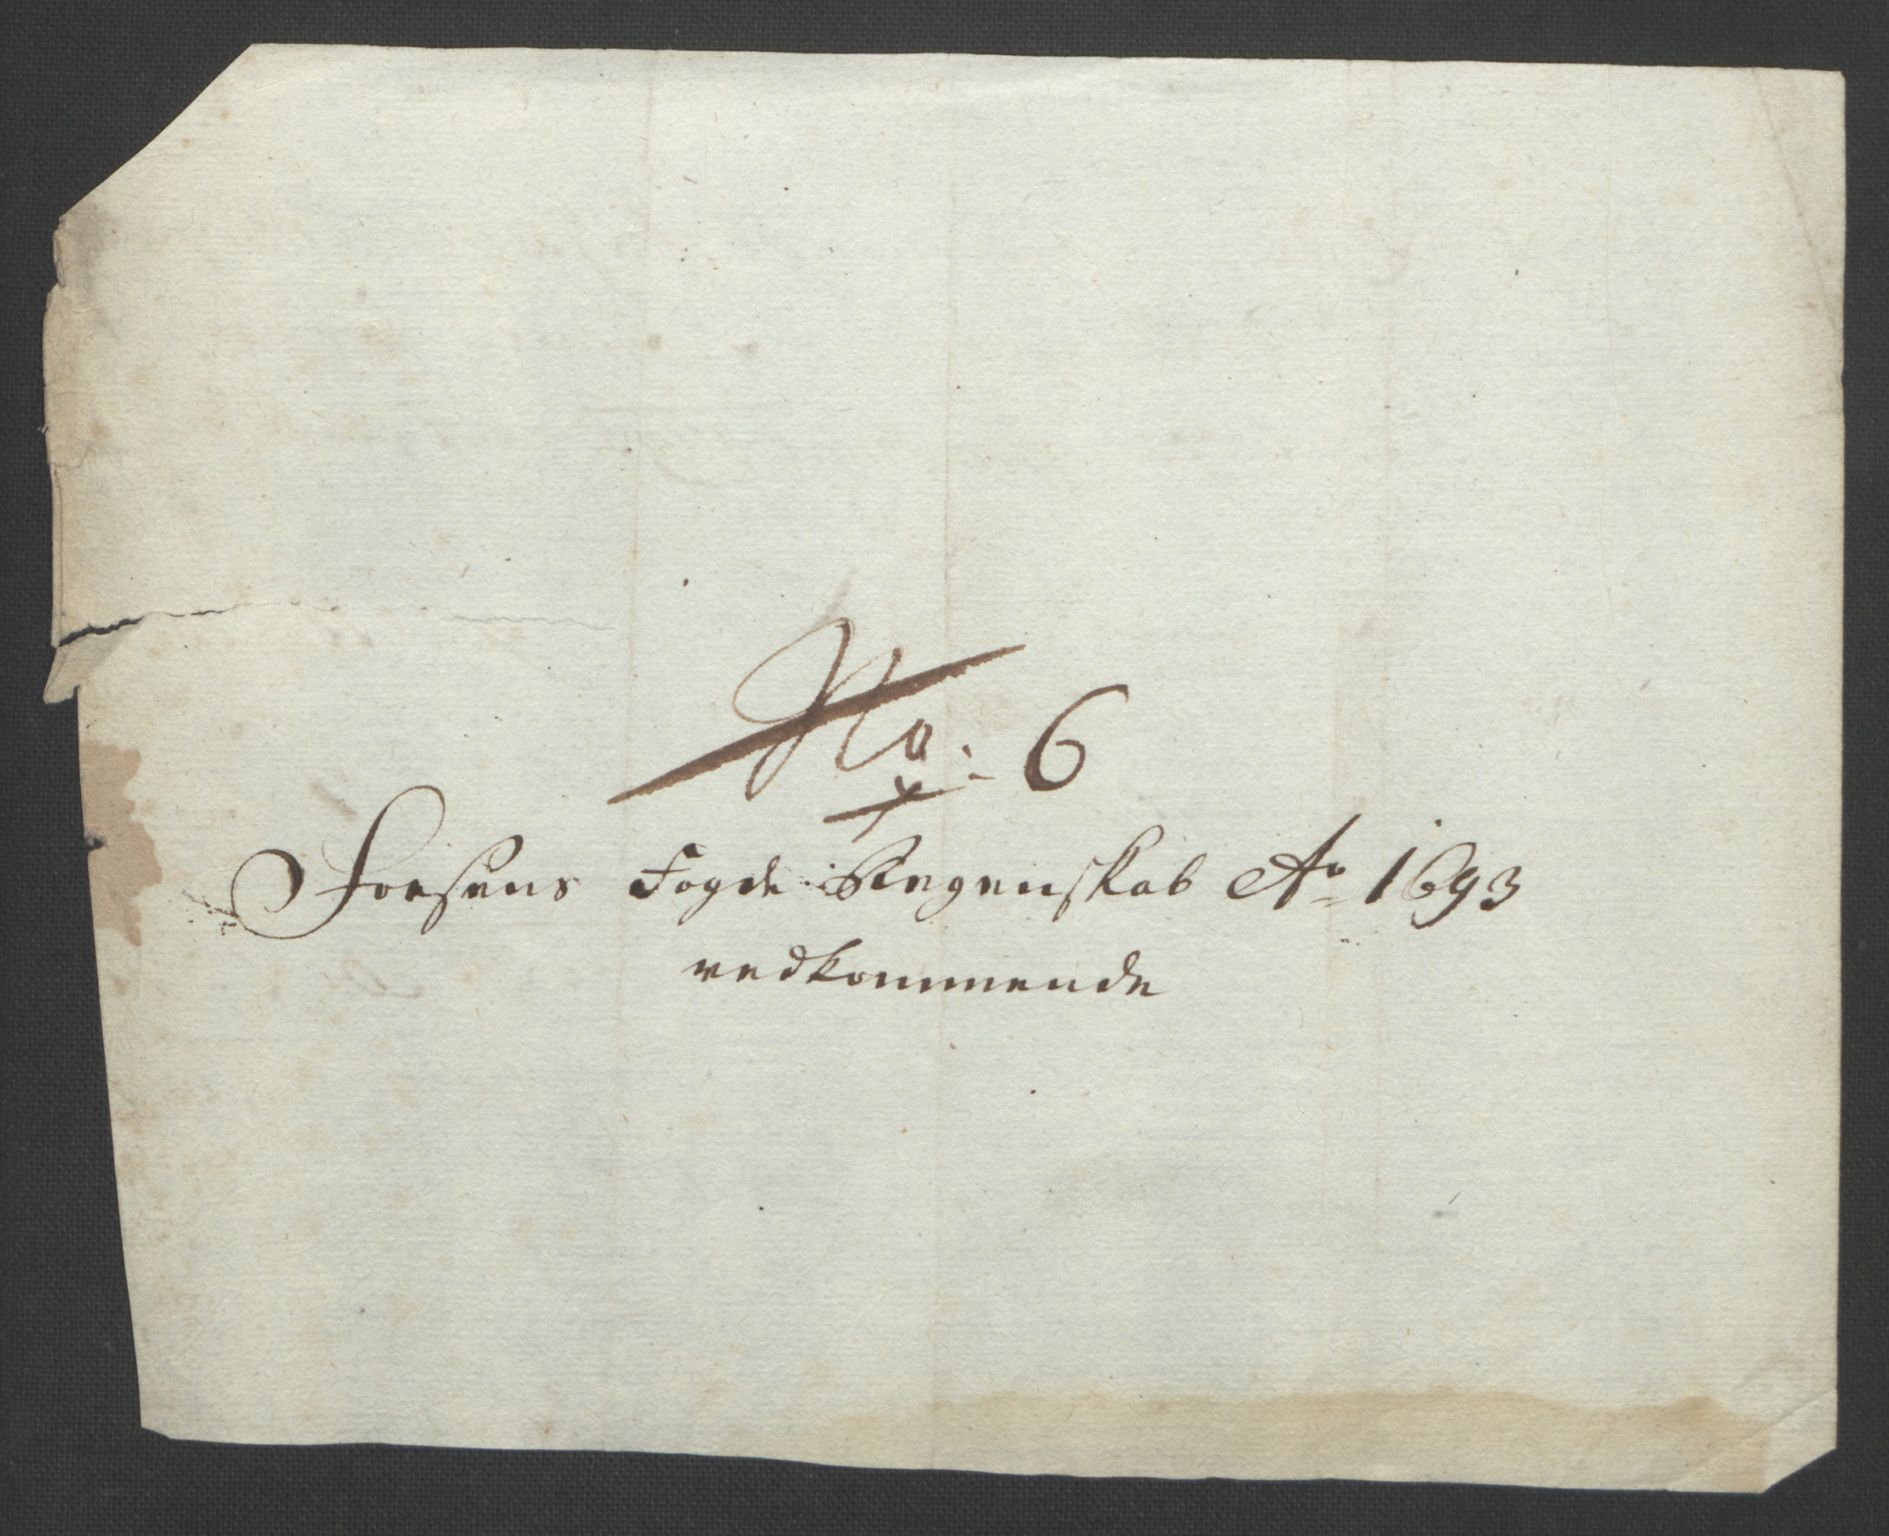 No: 6
Foesens Fogde Regenskab Ao 1693
vedkommende